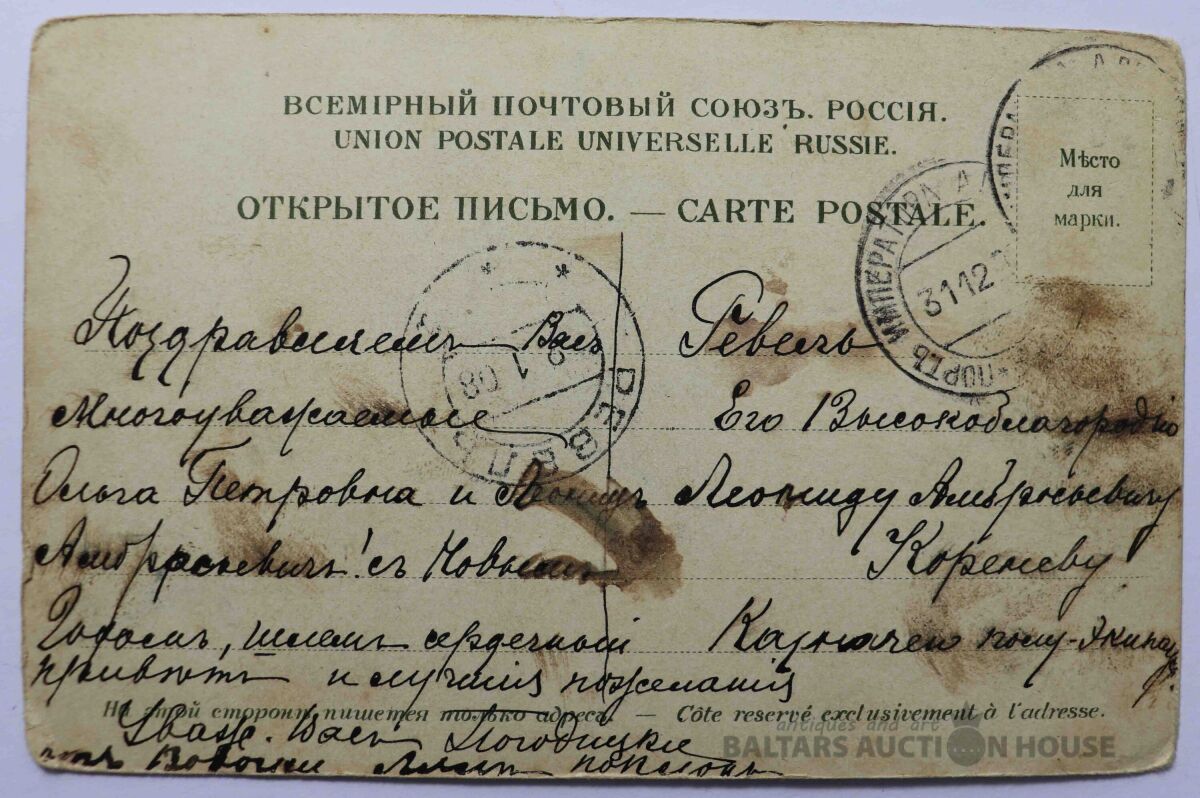 ВСЕМІРНЫЙ ПОЧТОВЫЙ СОЮЗЪ. РОССІЯ.
UNION POSTALE UNIVERSELLE RUSSIE.
ОТКРЫТОЕ ПИСЬМО. — CARTE POSTALE.
Мѣсто
для
марки.
ПОРТЪ ИМПЕРАТОР А
31 12
РЕВЕЛЬ
1 08
Поздравляемъ Васъ
Многоуважаемые
Ольга Петровна и Леонидъ
Амвросьевичъ! съ Новымъ
Годомъ, шлемъ сердечный
привѣтъ и лучшія пожеланія
Уваж. Васъ Погодицкіе
отъ Вовочки поклонъ
Ревель
Его Высокоблагородію
Леониду Амвросьевичу
Кореневу
Казначею полу-Экипажа
На этой сторонѣ пишется только адресъ. — Côte reservé exclusivement à l'adresse.
antiques and art
BALTARS AUCTION HOUSE